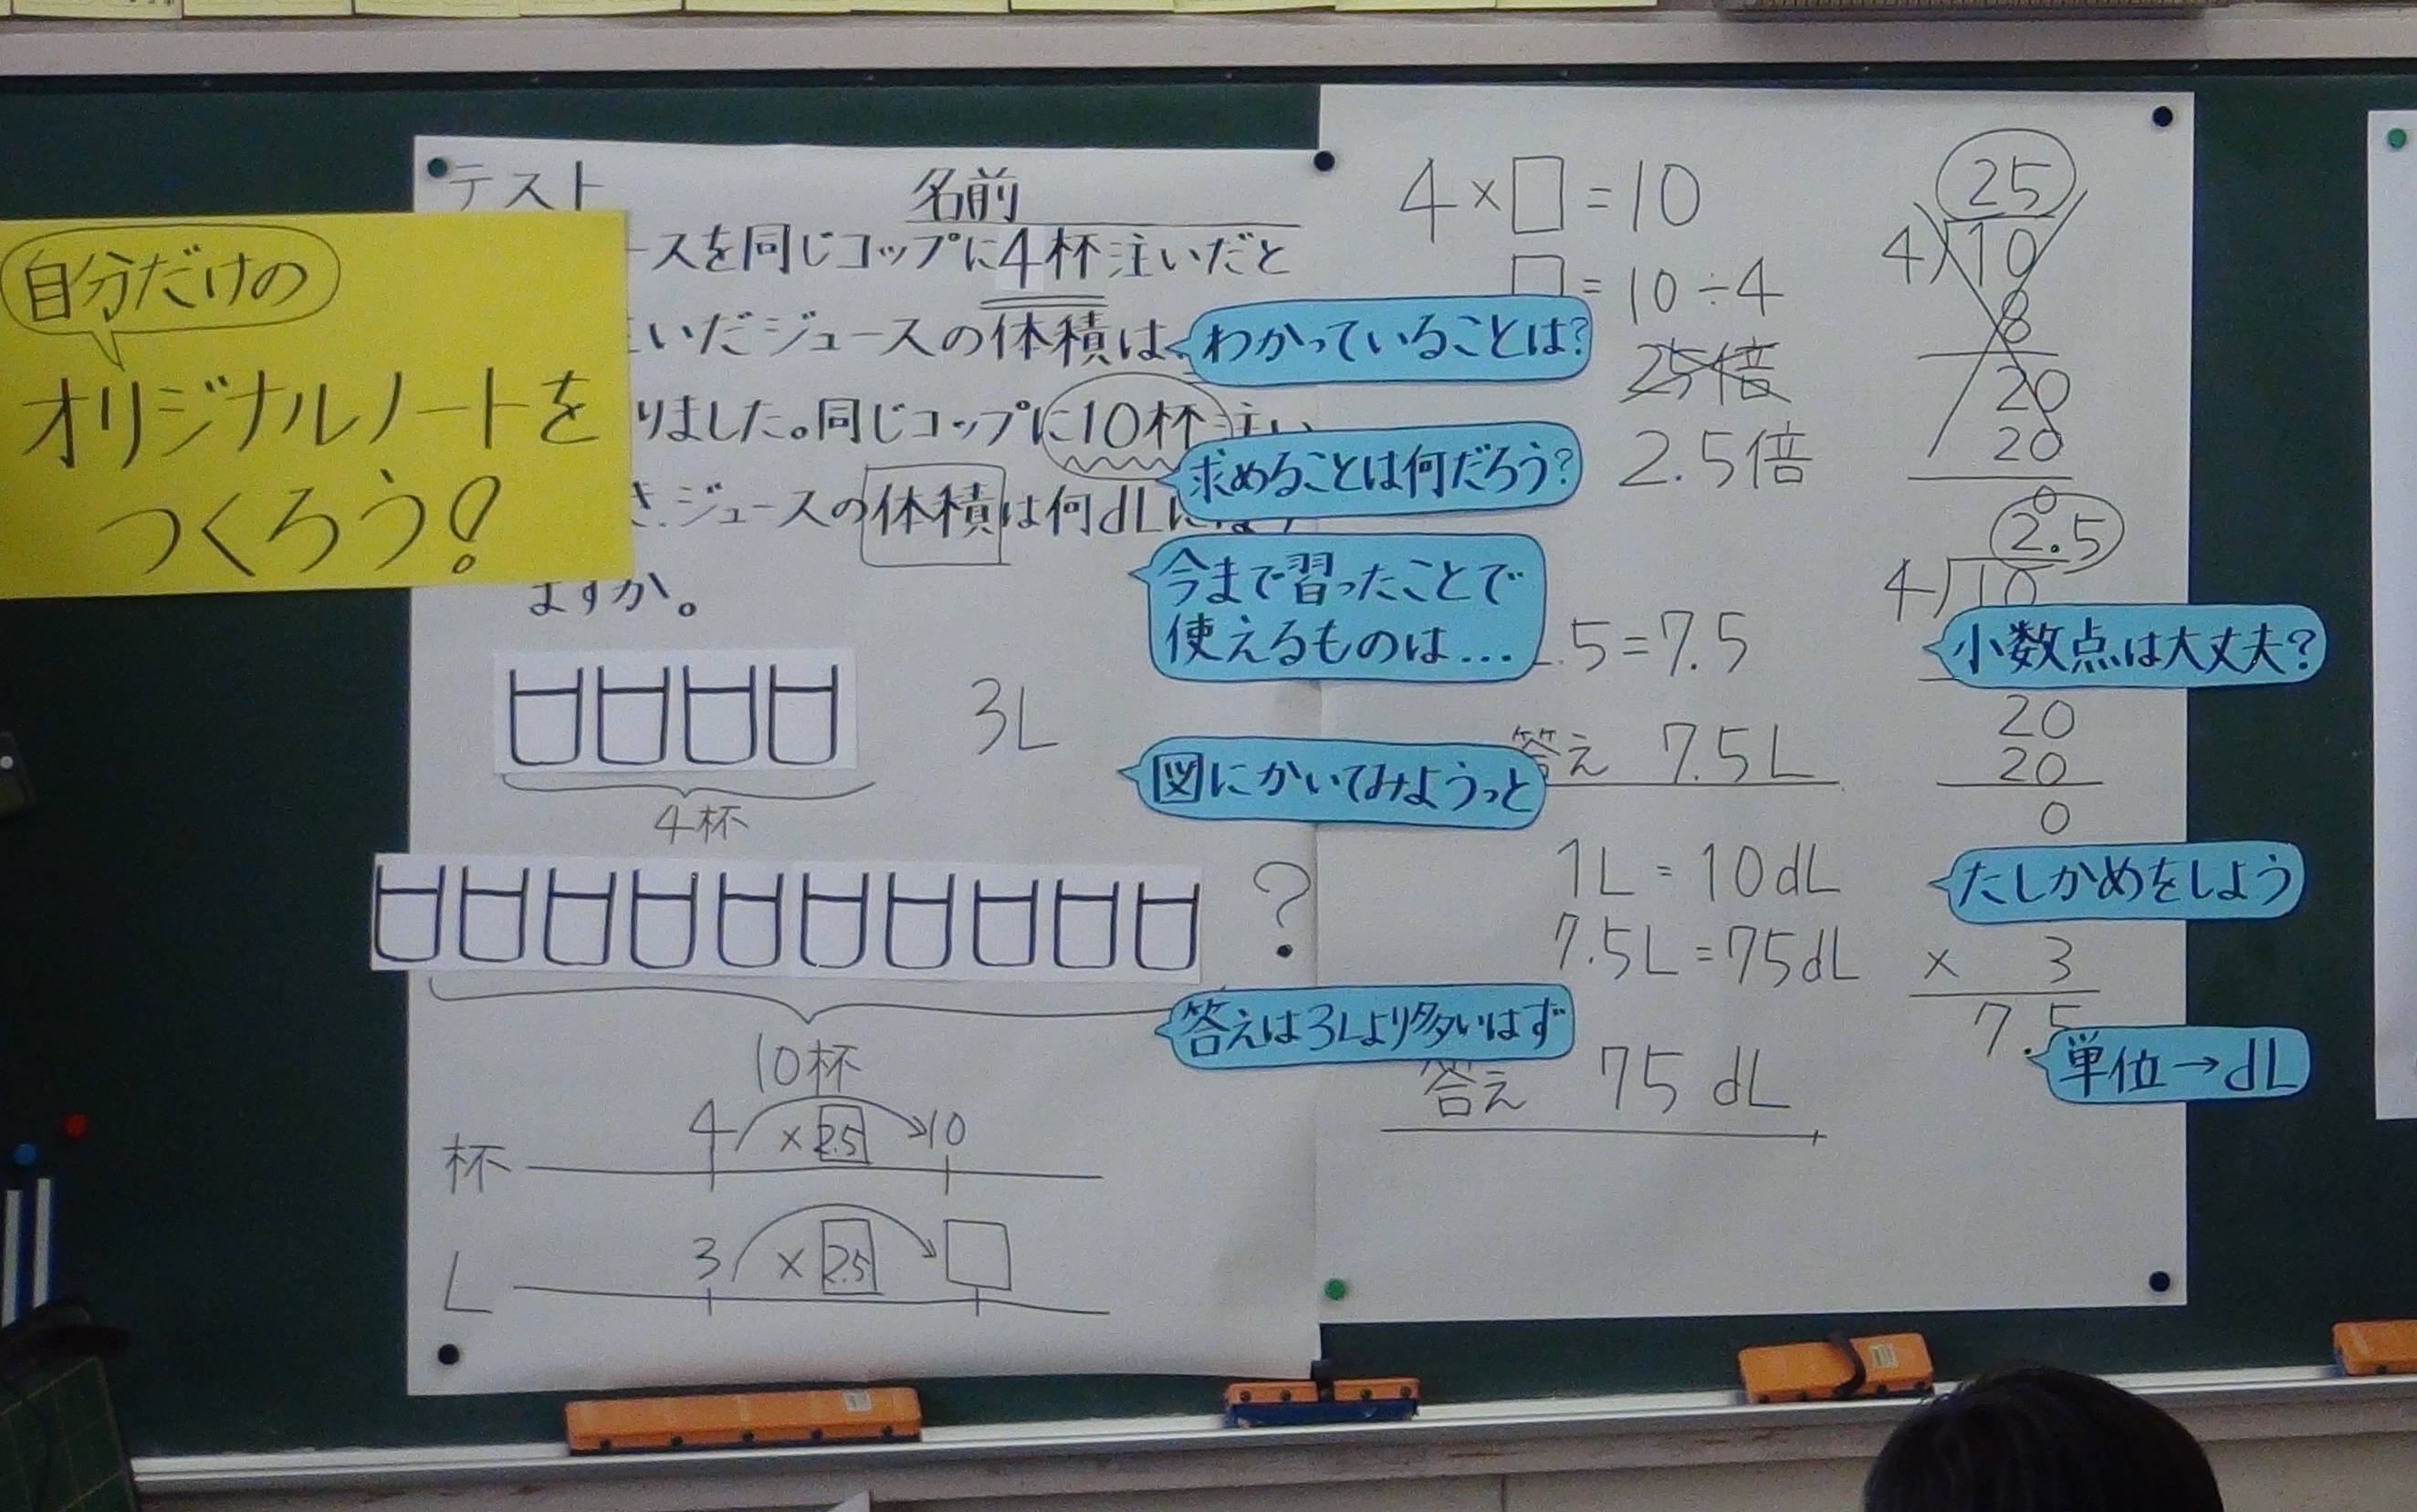 自分だけの
オリジナルノートを
つくろう!
テスト
名前
ースを同じコップに4杯注いだと
いだジュースの体積は
りました。同じコップに10杯注い
き、ジュースの体積は何dLになり
ますか。
3L
4杯
?
10杯
杯 4 ×2.5 10
L 3 ×2.5 □
わかっていることは?
求めることは何だろう?
今まで習ったことで
使えるものは...
図にかいてみようっと
答えは3Lより多いはず
4×□=10
□=10÷4
25倍
2.5倍
.5=7.5
答え 7.5L
1L=10dL
7.5L=75dL
答え 75dL
25
4)10
8
20
20
0
2.5
4)10
小数点は大丈夫?
20
20
0
たしかめをしよう
× 3
7.5
単位→dL